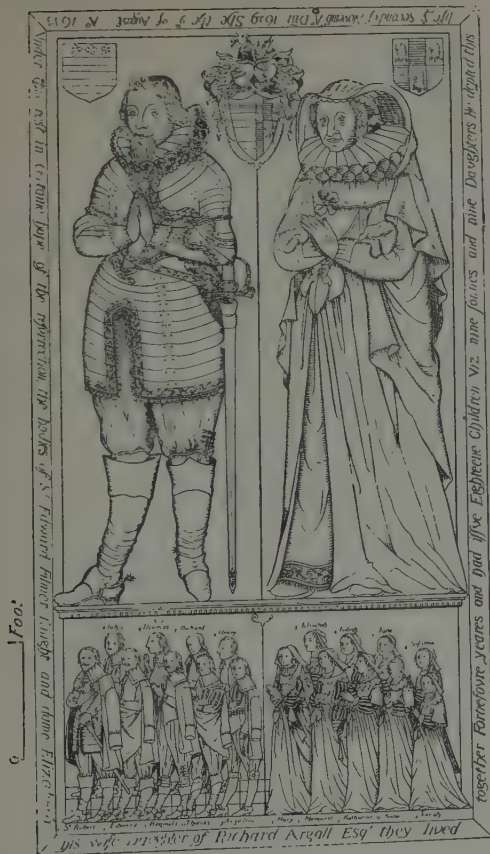 Under this rest in certaine hope of the resurrection, the bodies of Sr Edward Filmer knight and dame Eliza
his wife daughter of Richard Argall Esqr they lived
together Fortiefoure yeares and had issue Eighteene Children viz nine sonnes and nine Daughters He depted this
lyfe ye second of November Ao Dni 1629 Shee the 9 of August Ao
John Thomas Richard Henry
Elizabeth Judith Jane Susanna
Sr Robert Edward Mary Margarett Katharine Anne Sarah
0 1 Foot